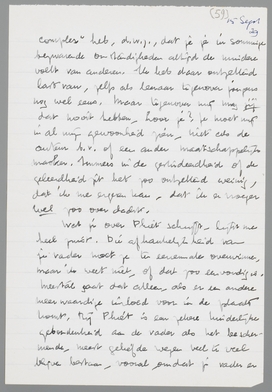 (59)
15 Sept
39
complex" heb, d.w.z., dat je je in sommige
bepaalde omstandigheden altijd de mindere
voelt van anderen. Ik heb daar ontzettend
last van, zelfs als leraar tegenover jongens
nog wel eens. Maar tegenover mij mag jij
dat nooit hebben, hoor je? Je moet mij
in al mijn gewoonheid zien, niet als de
auteur A.v. of een ander maatschappelijk
masker. Immers in de geleerdheid of de
zit het zoo ontzettend weinig,
dat ik me erger kan, dat ik er vroeger
wel zoo over dacht.
Wat je over Phiét schrijft, lijkt me
heel juist. Die afhankelijkheid van
je vader moet je ten eenenmale overwinnen,
maar ik weet niet, of dat zoo eenvoudig is.
Meestal gaat dat alleen als er een andere
meerwaardige invloed voor in de plaats
komt, bij Phiét is een zekere kinderlijke
gebondenheid aan de vader als het bescher-
mende, meest geliefde wezen veel te veel
blijven bestaan, vooral omdat je vader er